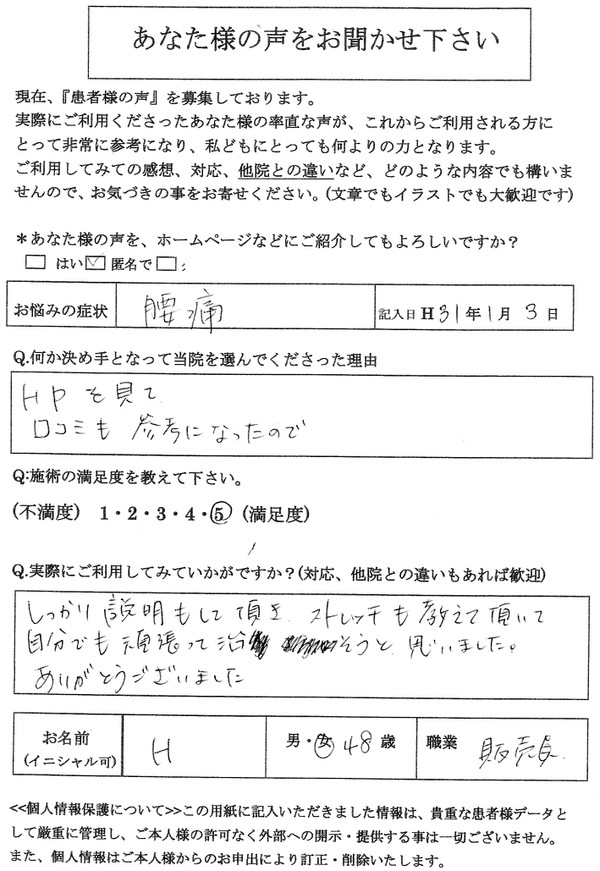 あなた様の声をお聞かせ下さい
現在、『患者様の声』を募集しております。
実際にご利用くださったあなた様の率直な声が、これからご利用される方に
とって非常に参考になり、私どもにとっても何よりの力となります。
ご利用してみての感想、対応、他院との違いなど、どのような内容でも構いま
せんので、お気づきの事をお寄せください。(文章でもイラストでも大歓迎です)
＊あなた様の声を、ホームページなどにご紹介してもよろしいですか？
□ はい ☑ 匿名で □ ;
お悩みの症状 腰痛 記入日 H 31年1月 3 日
Q.何か決め手となって当院を選んでくださった理由
HPを見て
口コミも 参考になったので
Q:施術の満足度を教えて下さい。
(不満度) 1・2・3・4・⑤ (満足度)
Q.実際にご利用してみていかがですか？(対応、他院との違いもあれば歓迎)
しっかり説明もして頂き ストレッチも教えて頂いて
自分でも頑張って治そうと思いました。
ありがとうございました
お名前 H 男・女 48歳 職業 販売員
(イニシャル可)
<<個人情報保護について>>この用紙に記入いただきました情報は、貴重な患者様データと
して厳重に管理し、ご本人様の許可なく外部への開示・提供する事は一切ございません。
また、個人情報はご本人様からのお申出により訂正・削除いたします。